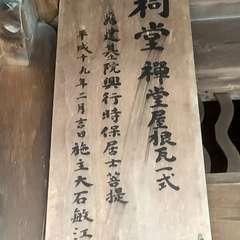 祠堂 禅堂屋根瓦一式
建基院興行時保居士菩提
平成十九年二月吉日 施主 大石敏江